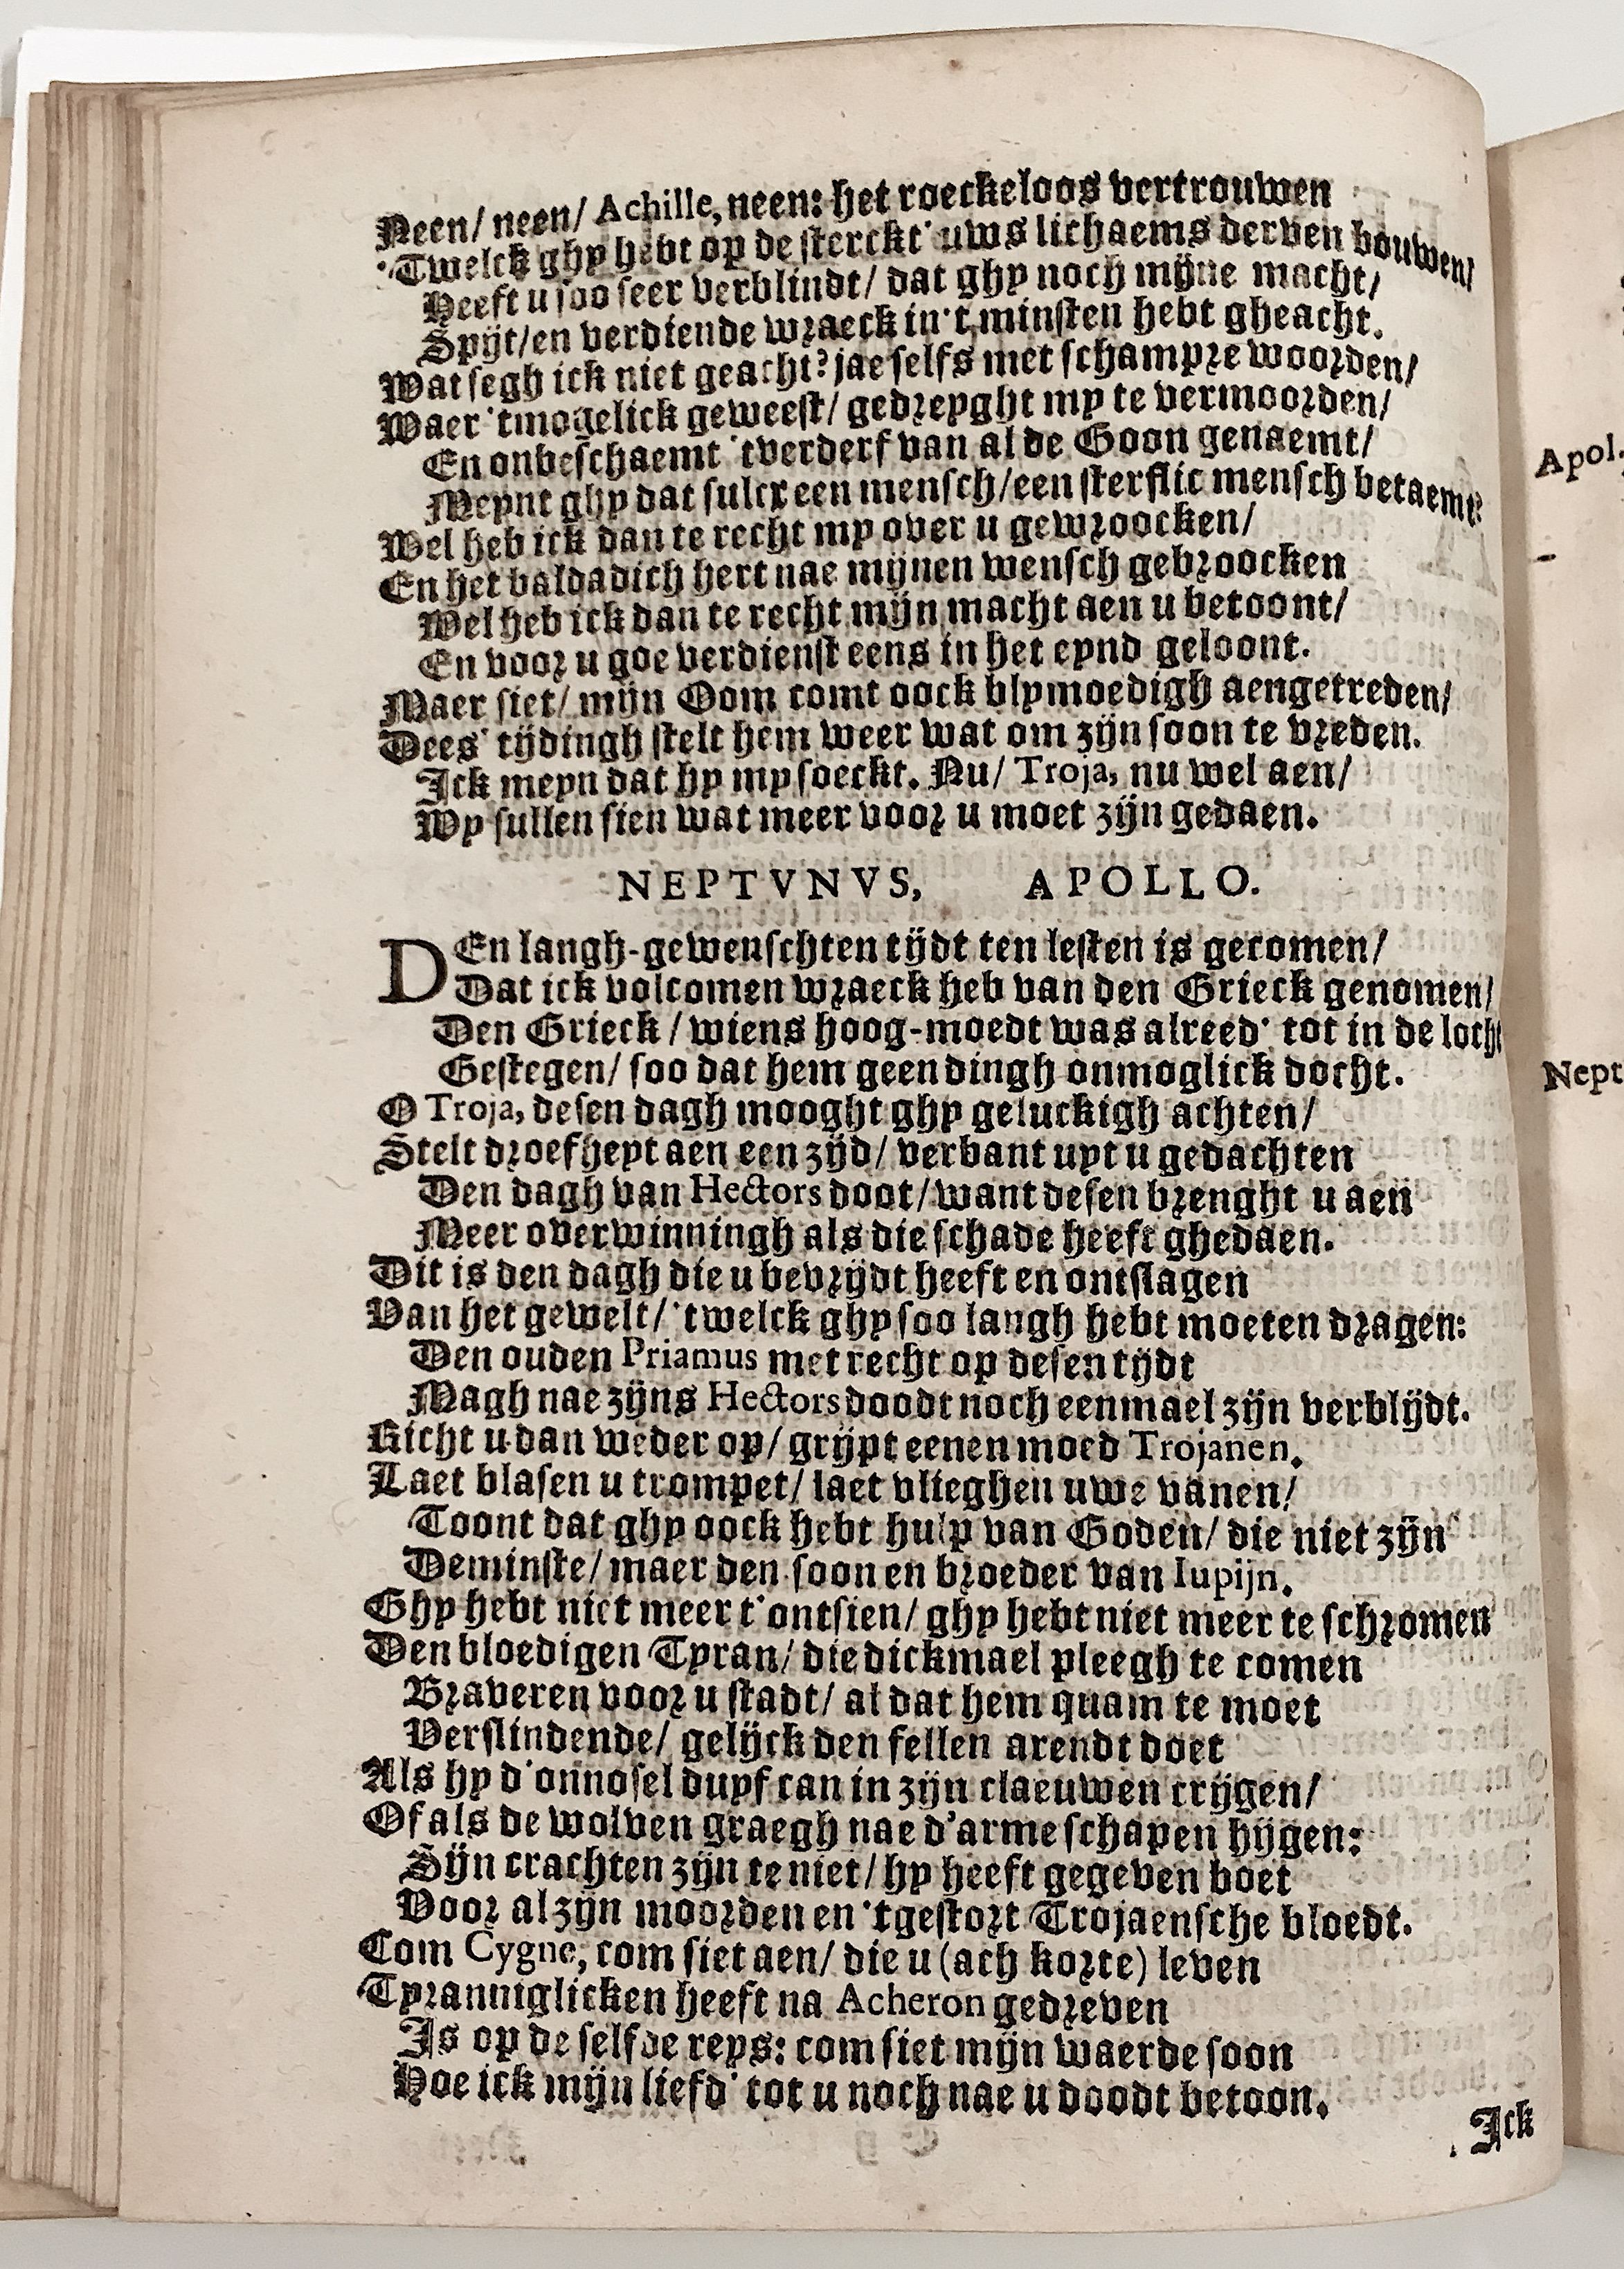 Neen/ neen/ Achille, neen: het roeckeloos vertrouwen
'Twelck ghy hebt op de sterckt' uws lichaems derven bouwen/
Heeft u soo seer verblindt/ dat ghy noch mijne macht/
Spijt/ en verdiende wraeck in't minsten hebt gheacht.
Wat segh ick niet geacht? jae selfs met schampre woorden/
Waer 'tmogelick geweest/ gedreyght my te vermoorden/
En onbeschaemt 'tverderf van al de Goon genaemt/
Meynt ghy dat sulcx een mensch/ een sterflic mensch betaemt?
Wel heb ick dan te recht my over u gewroocken/
En het baldadich hert nae mijnen wensch gebroocken
Wel heb ick dan te recht mijn macht aen u betoont/
En voor u goe verdienst eens in het eynd geloont.
Maer siet/ mijn Oom comt oock blymoedigh aengetreden/
Dees' tijdingh stelt hem weer wat om zijn soon te vreden.
Ick meyn dat hy my soeckt. Nu/ Troja, nu wel aen/
Wy sullen sien wat meer voor u moet zijn gedaen.
NEPTVNVS, APOLLO.
DEn langh-gewenschten tijdt ten lesten is gecomen/
Dat ick volcomen wraeck heb van den Grieck genomen/
Den Grieck/ wiens hoog-moedt was alreed' tot in de locht
Gestegen/ soo dat hem geen dingh onmoglick docht.
O Troja, desen dagh mooght ghy geluckigh achten/
Stelt droefheyt aen een zijd/ verbant uyt u gedachten
Den dagh van Hectors doot/ want desen brenght u aen
Meer overwinningh als die schade heeft ghedaen.
Dit is den dagh die u bevrijdt heeft en ontslagen
Van het gewelt/ 'twelck ghy soo langh hebt moeten dragen:
Den ouden Priamus met recht op desen tijdt
Magh nae zijns Hectors doodt noch eenmael zijn verblijdt.
Richt u dan weder op/ grijpt eenen moed Trojanen,
Laet blasen u trompet/ laet vlieghen uwe vanen/
Toont dat ghy oock hebt hulp van Goden/ die niet zijn
De minste/ maer den soon en broeder van Iupijn.
Ghy hebt niet meer t'ontsien/ ghy hebt niet meer te schromen
Den bloedigen Tyran/ die dickmael pleegh te comen
Braveren voor u stadt/ al dat hem quam te moet
Verslindende/ gelijck den fellen arendt doet
Als hy d'onnosel duyf can in zijn claeuwen crijgen/
Of als de wolven graegh nae d'arme schapen hijgen:
Sijn crachten zijn te niet/ hy heeft gegeven boet
Voor al zijn moorden en 'tgestort Trojaensche bloedt.
Com Cygne, com siet aen/ die u (ach korte) leven
Tyranniglicken heeft na Acheron gedreven
Is op de selfde reys: com siet mijn waerde soon
Hoe ick mijn liefd' tot u noch nae u doodt betoon.
Ick
Apol.
Nept